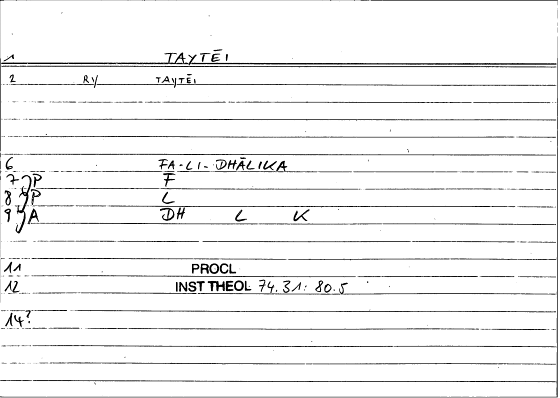 1 TAYTĒI
2 RY TAYTĒI
6 FA-LI-DHĀLIKA
7 P F
8 P L
9 A DH L K
11 PROCL
12 INST THEOL 74.31: 80.5
14?